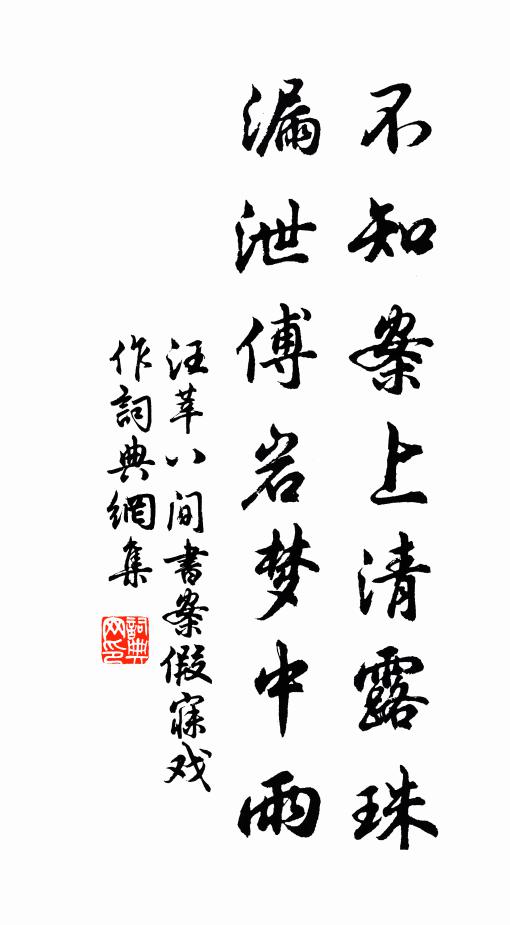 不知案上清露珠
漏泄傅岩梦中雨
汪莘八间書案假寐戏
作詞典網集
詞典網印